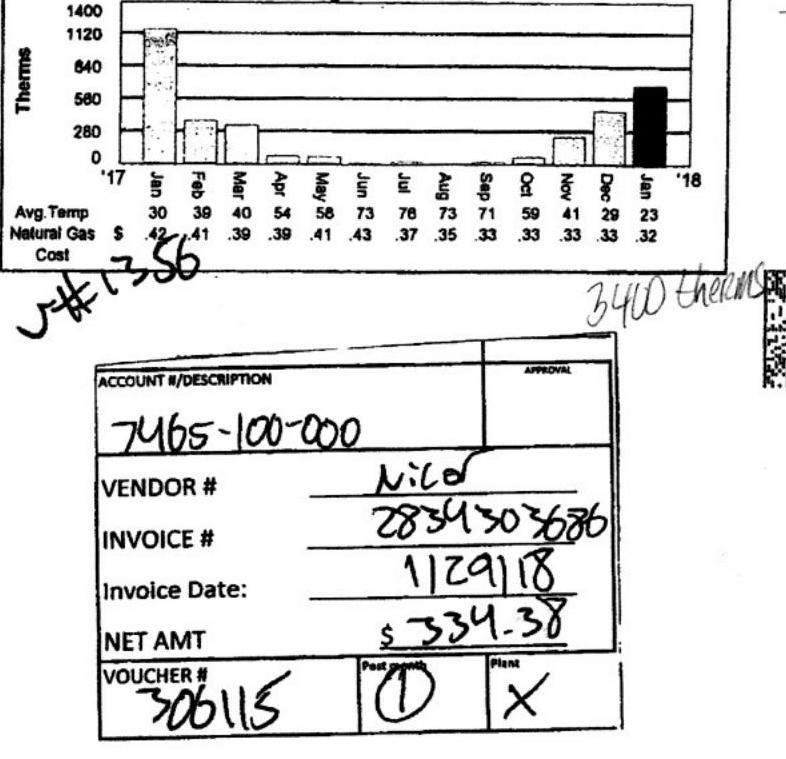 1400
1120
840
560
280
0
Therms
'17 Jan Feb Mar Apr May Jun Jul Aug Sep Oct Nov Dec Jan '18
Avg.Temp 30 39 40 54 58 73 76 73 71 59 41 29 23
Natural Gas $ .42 .41 .39 .39 .41 .43 .37 .35 .33 .33 .33 .33 .32
Cost
#1356
3400 therms
ACCOUNT #/DESCRIPTION APPROVAL
7465-100-000
VENDOR # Nicor
INVOICE # 2834303686
Invoice Date: 1/29/18
NET AMT $ 334.38
VOUCHER # Post month Plant
306115 1 X